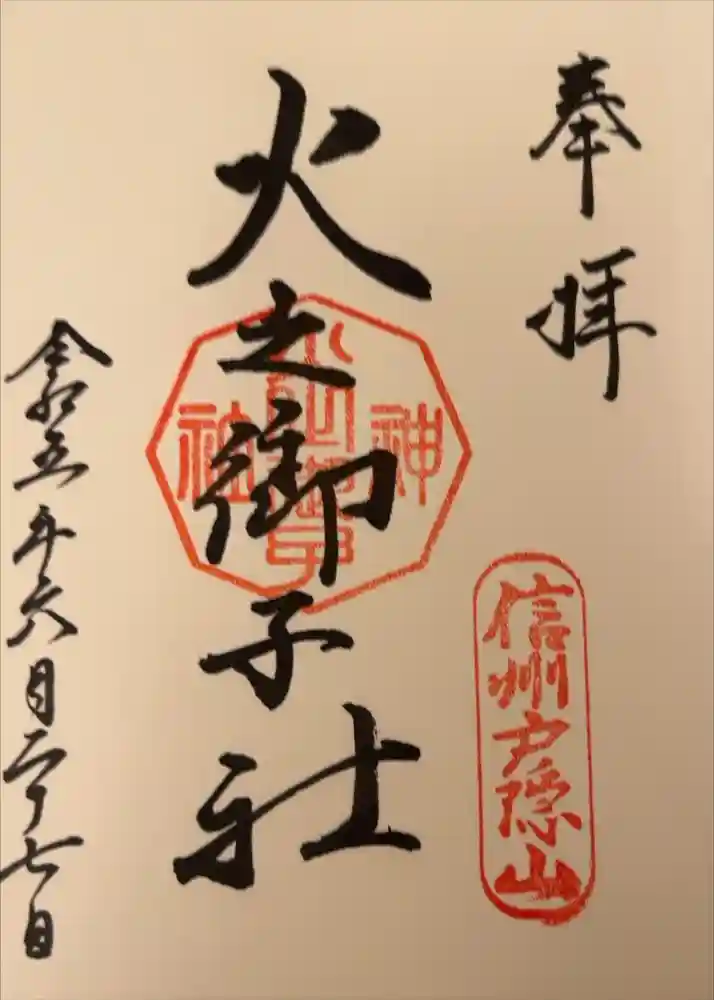 奉拝
信州戸隠山
火之御子社
令和五年六月二十七日